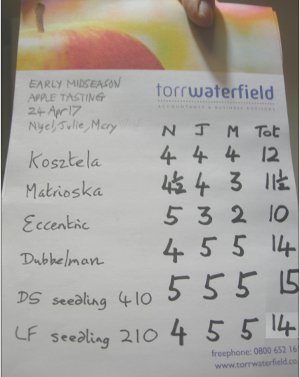 EARLY MIDSEASON
APPLE TASTING
24 Apr 17
Nigel, Julie, Mary
torrwaterfield
ACCOUNTANTS & BUSINESS ADVISORS
N J M Tot
Kosztela 4 4 4 12
Matrioska 4½ 4 3 11½
Eccentric 5 3 2 10
Dubbelman 4 5 5 14
DS seedling 410 5 5 5 15
LF seedling 210 4 5 5 14
freephone: 0800 652 16
www.torrwaterfield.co